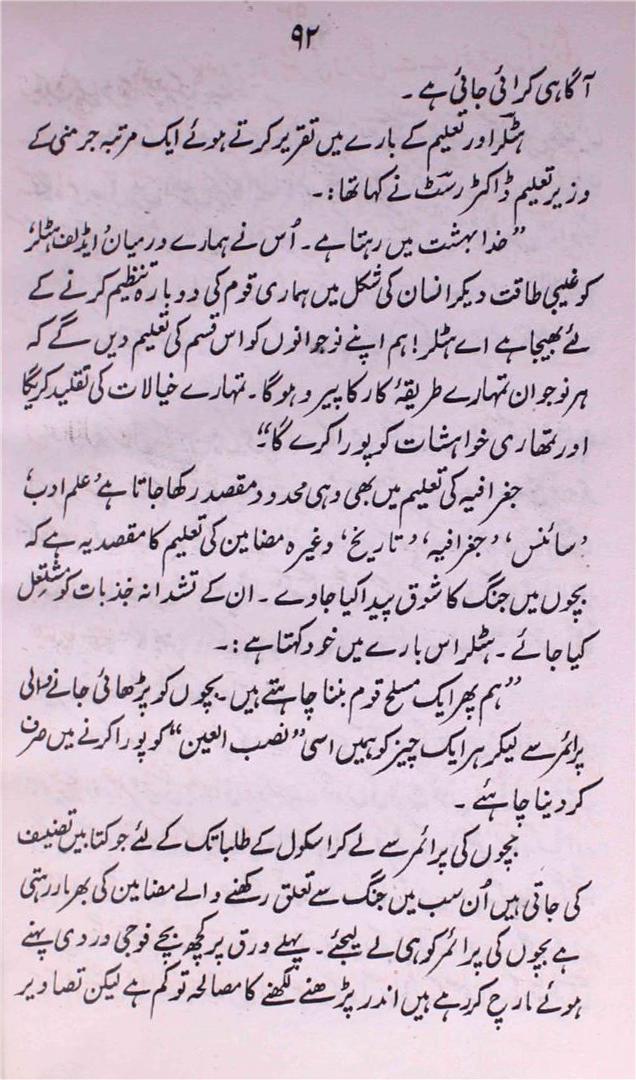 ۹۲
آگاہی کرائی جائی ہے ۔
ہٹلر اور تعلیم کے بارے میں تقریر کرتے ہوئے ایک مرتبہ جرمنی کے
وزیر تعلیم ڈاکٹر رسٹ نے کہا تھا :۔
”خدا بہشت میں رہتا ہے ۔ اُس نے ہمارے درمیان ’ایڈلف ہٹلر‘
کو غیبی طاقت دیکر انسان کی شکل میں ہماری قوم کی دوبارہ تنظیم کرنے کے
لئے بھیجا ہے اے ہٹلر! ہم اپنے نوجوانوں کو اس قسم کی تعلیم دیں گے کہ
ہر نوجوان تمہارے طریقۂ کار کا پیرو ہوگا ۔ تمہارے خیالات کی تقلید کریگا
اور تمھاری خواہشات کو پورا کرے گا“
جغرافیہ کی تعلیم میں بھی وہی محدود مقصد رکھا جاتا ہے ’علم ادب‘
’سائنس‘، ’جغرافیہ‘، ’تاریخ‘، وغیرہ مضامین کی تعلیم کا مقصد یہ ہے کہ
بچوں میں جنگ کا شوق پیدا کیا جاوے ۔ ان کے تشدانہ جذبات کو مشتعل
کیا جائے ۔ ہٹلر اس بارے میں خود کہتا ہے :۔
”ہم پھر ایک مسلح قوم بننا چاہتے ہیں ۔ بچوں کو پڑھائی جانے والی
پرائمر سے لیکر ہر ایک چیز کو ہمیں اسی ”نصب العین“ کو پورا کرنے میں صرف
کر دینا چاہئے ۔
بچوں کی پرائمر سے لے کر اسکول کے طلبا تک کے لئے جو کتابیں تصنیف
کی جاتی ہیں اُن سب میں جنگ سے تعلق رکھنے والے مضامین کی بھرمار رہتی
ہے بچوں کی پرائمر کو ہی لے لیجئے ۔ پہلے ورق پر کچھ بچے فوجی وردی پہنے
ہوئے مارچ کر رہے ہیں اندر پڑھنے لکھنے کا مصالحہ تو کم ہے لیکن تصاویر